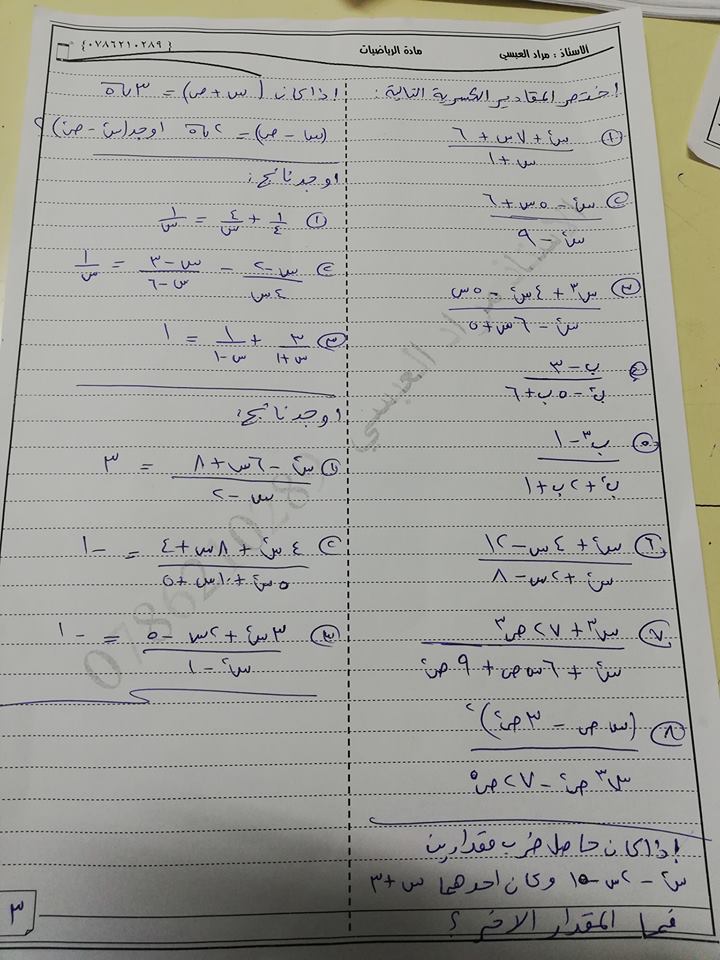 الاستاذ : مراد العبسي
مادة الرياضيات
{ ٠٧٨٦٢١٠٢٨٩ }
اختصر المقادير الكسرية التالية :
١) س٢ + ٧س + ٦ / س + ١
٢) س٢ - ٥س + ٦ / س٢ - ٩
٣) س٣ + ٤س٢ - ٥س / س٢ - ٦س + ٥
٤) ب - ٣ / ب٢ - ٥ب + ٦
٥) ب٣ - ١ / ب٢ + ٢ب + ١
٦) س٢ + ٤س - ١٢ / س٢ + ٢س - ٨
٧) س٣ + ٢٧ص٣ / س٢ + ٦س ص + ٩ص٢
٨) (س ص - ٣ص٢)٢ / س٣ص٢ - ٢٧ص٥
إذا كان حاصل ضرب مقدارين
س٢ - ٢س - ١٥ وكان احدهما س + ٣
فما المقدار الاخر ؟
اذا كان (س + ص) = ٣√٥
(س - ص) = ٢√٥ اوجد (س٢ - ص٢) ؟
اوجد ناتج :
١) ١/٤ + ٤/س = ١/س
٢) س - ٢ / ٤س - س - ٣ / س - ٦ = ١/س
٣) ٣ / س + ١ + ١ / س - ١ = ١
اوجد ناتج :
١) س٢ - ٦س + ٨ / س - ٢ = ٣
٢) ٤س٢ + ٨س + ٤ / ٥س٢ + ١٠س + ٥ = - ١
٣) ٣س٢ + ٢س - ٥ / س٢ - ١ = - ١
الاستاذ مراد العبسي 0786210289
٣